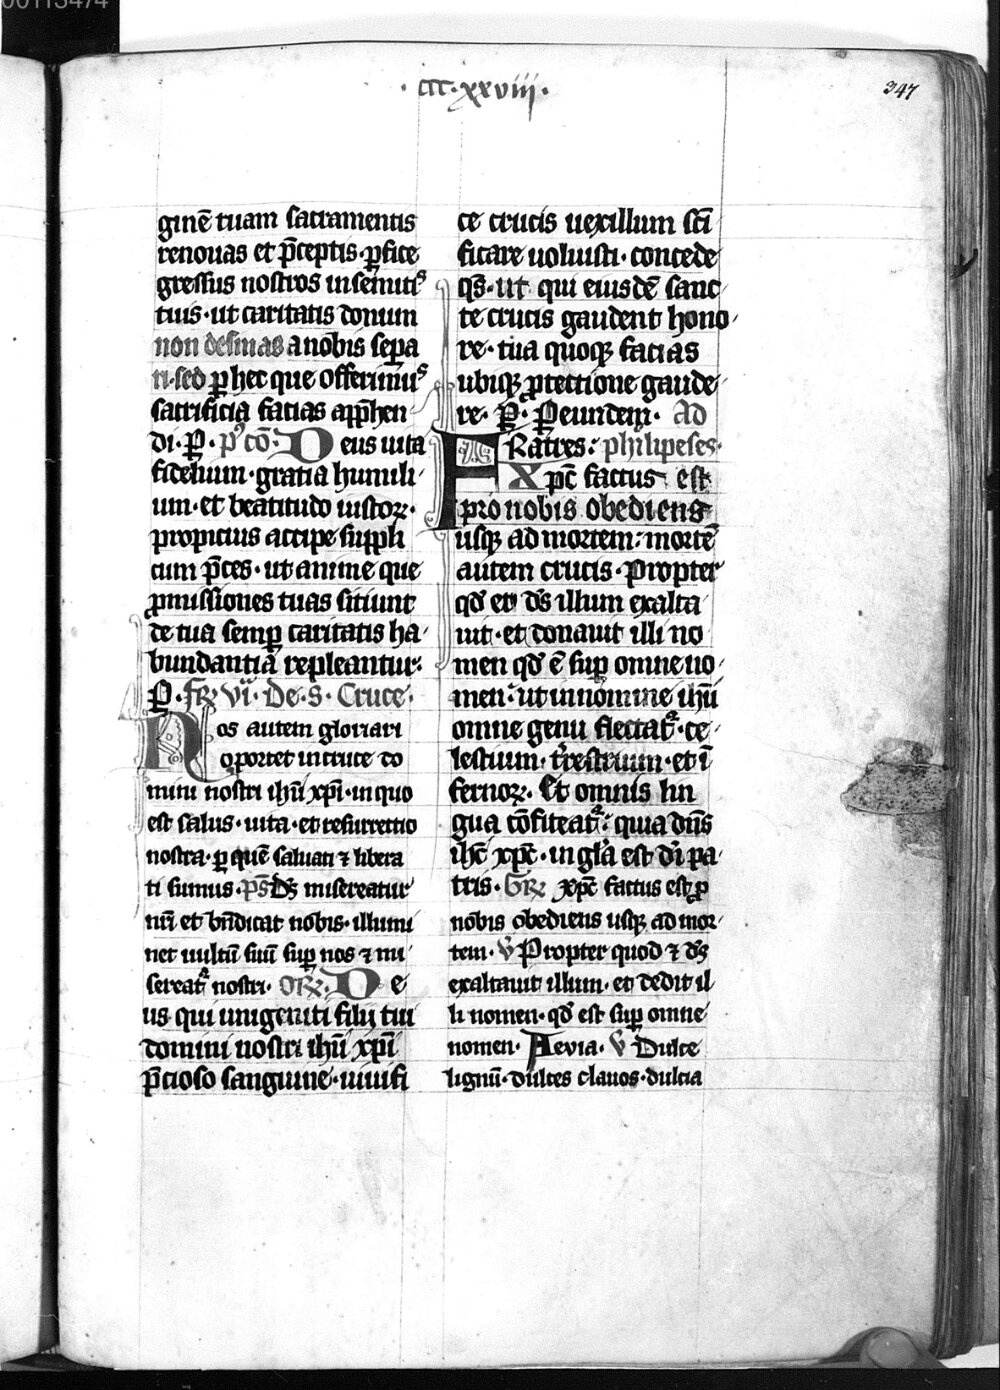 00113474
·ccc·xxviii·
347
ginē tuam sacramentis
renouas et p̄ceptis·ꝑfice
gressus nostros in semitiꝰ
tuis·ut caritatis donum
non desinas a nobis sepa
ri·sed ꝑ hec que offerimuꝰ
sacrificia facias app̄hen
di·P̱·pꝰ cō·Deus uita
fidelium·gratia humili
um·et beatitudo iustoꝝ·
propitius accipe suppli
cum p̄ces·ut anime que
ꝓmissiones tuas sitiunt
de tua semꝑ caritatis ha
bundantiā repleantur:
P̱·fR̄ vi·De·s·Cruce·
Nos autem gloriari
oportet in cruce do
mini nostri ihū xp̄i·in quo
est salus·uita·et resurrectio
nostra·ꝑ quē saluati ⁊ libera
ti sumus·p̄s Dꝫ misereatur
nr̄i et bn̄dicat nobis·illumi
net uultū suū suꝑ nos ⁊ mi
sereat᷑ nostri·oꝝ·De
us qui unigeniti filij tui
domini nostri ihū xp̄i
p̄cioso sanguine·uiuifi
ce crucis uexillum sc̄i
ficare uoluisti·concede
qs̄·ut qui eiusdē sanc
te crucis gaudent hono
re·tua quoqꝫ facias
ubiqꝫ ꝓtectione gaude
re·P̱·Peundem·Ad
FRatres: philipeses·
Xpc̄ factus est
pro nobis obediens
usqꝫ ad mortem: mortē
autem crucis·Propter
qd̄ et ds̄ illum exalta
uit·et donauit illi no
men qd̄ ē suꝑ omne no
men: ut in nomine ihū
omne genu flectat᷑·ce
lestium·t̄restrium·et ī
fernoꝝ·Et omnis lin
gua cōfiteat᷑: quia dn̄s
ihc̄ xpc̄·in gl̄a est dī pa
tris·GR̄ xpc̄ factus est ꝓ
nobis obediens usqꝫ ad mor
tem·V̄ Propter quod ⁊ dꝫ
exaltauit illum·et dedit il
li nomen·qd̄ est suꝑ omne
nomen·Aeuia·V̄ Dulce
lignū·dulces clauos·dulcia